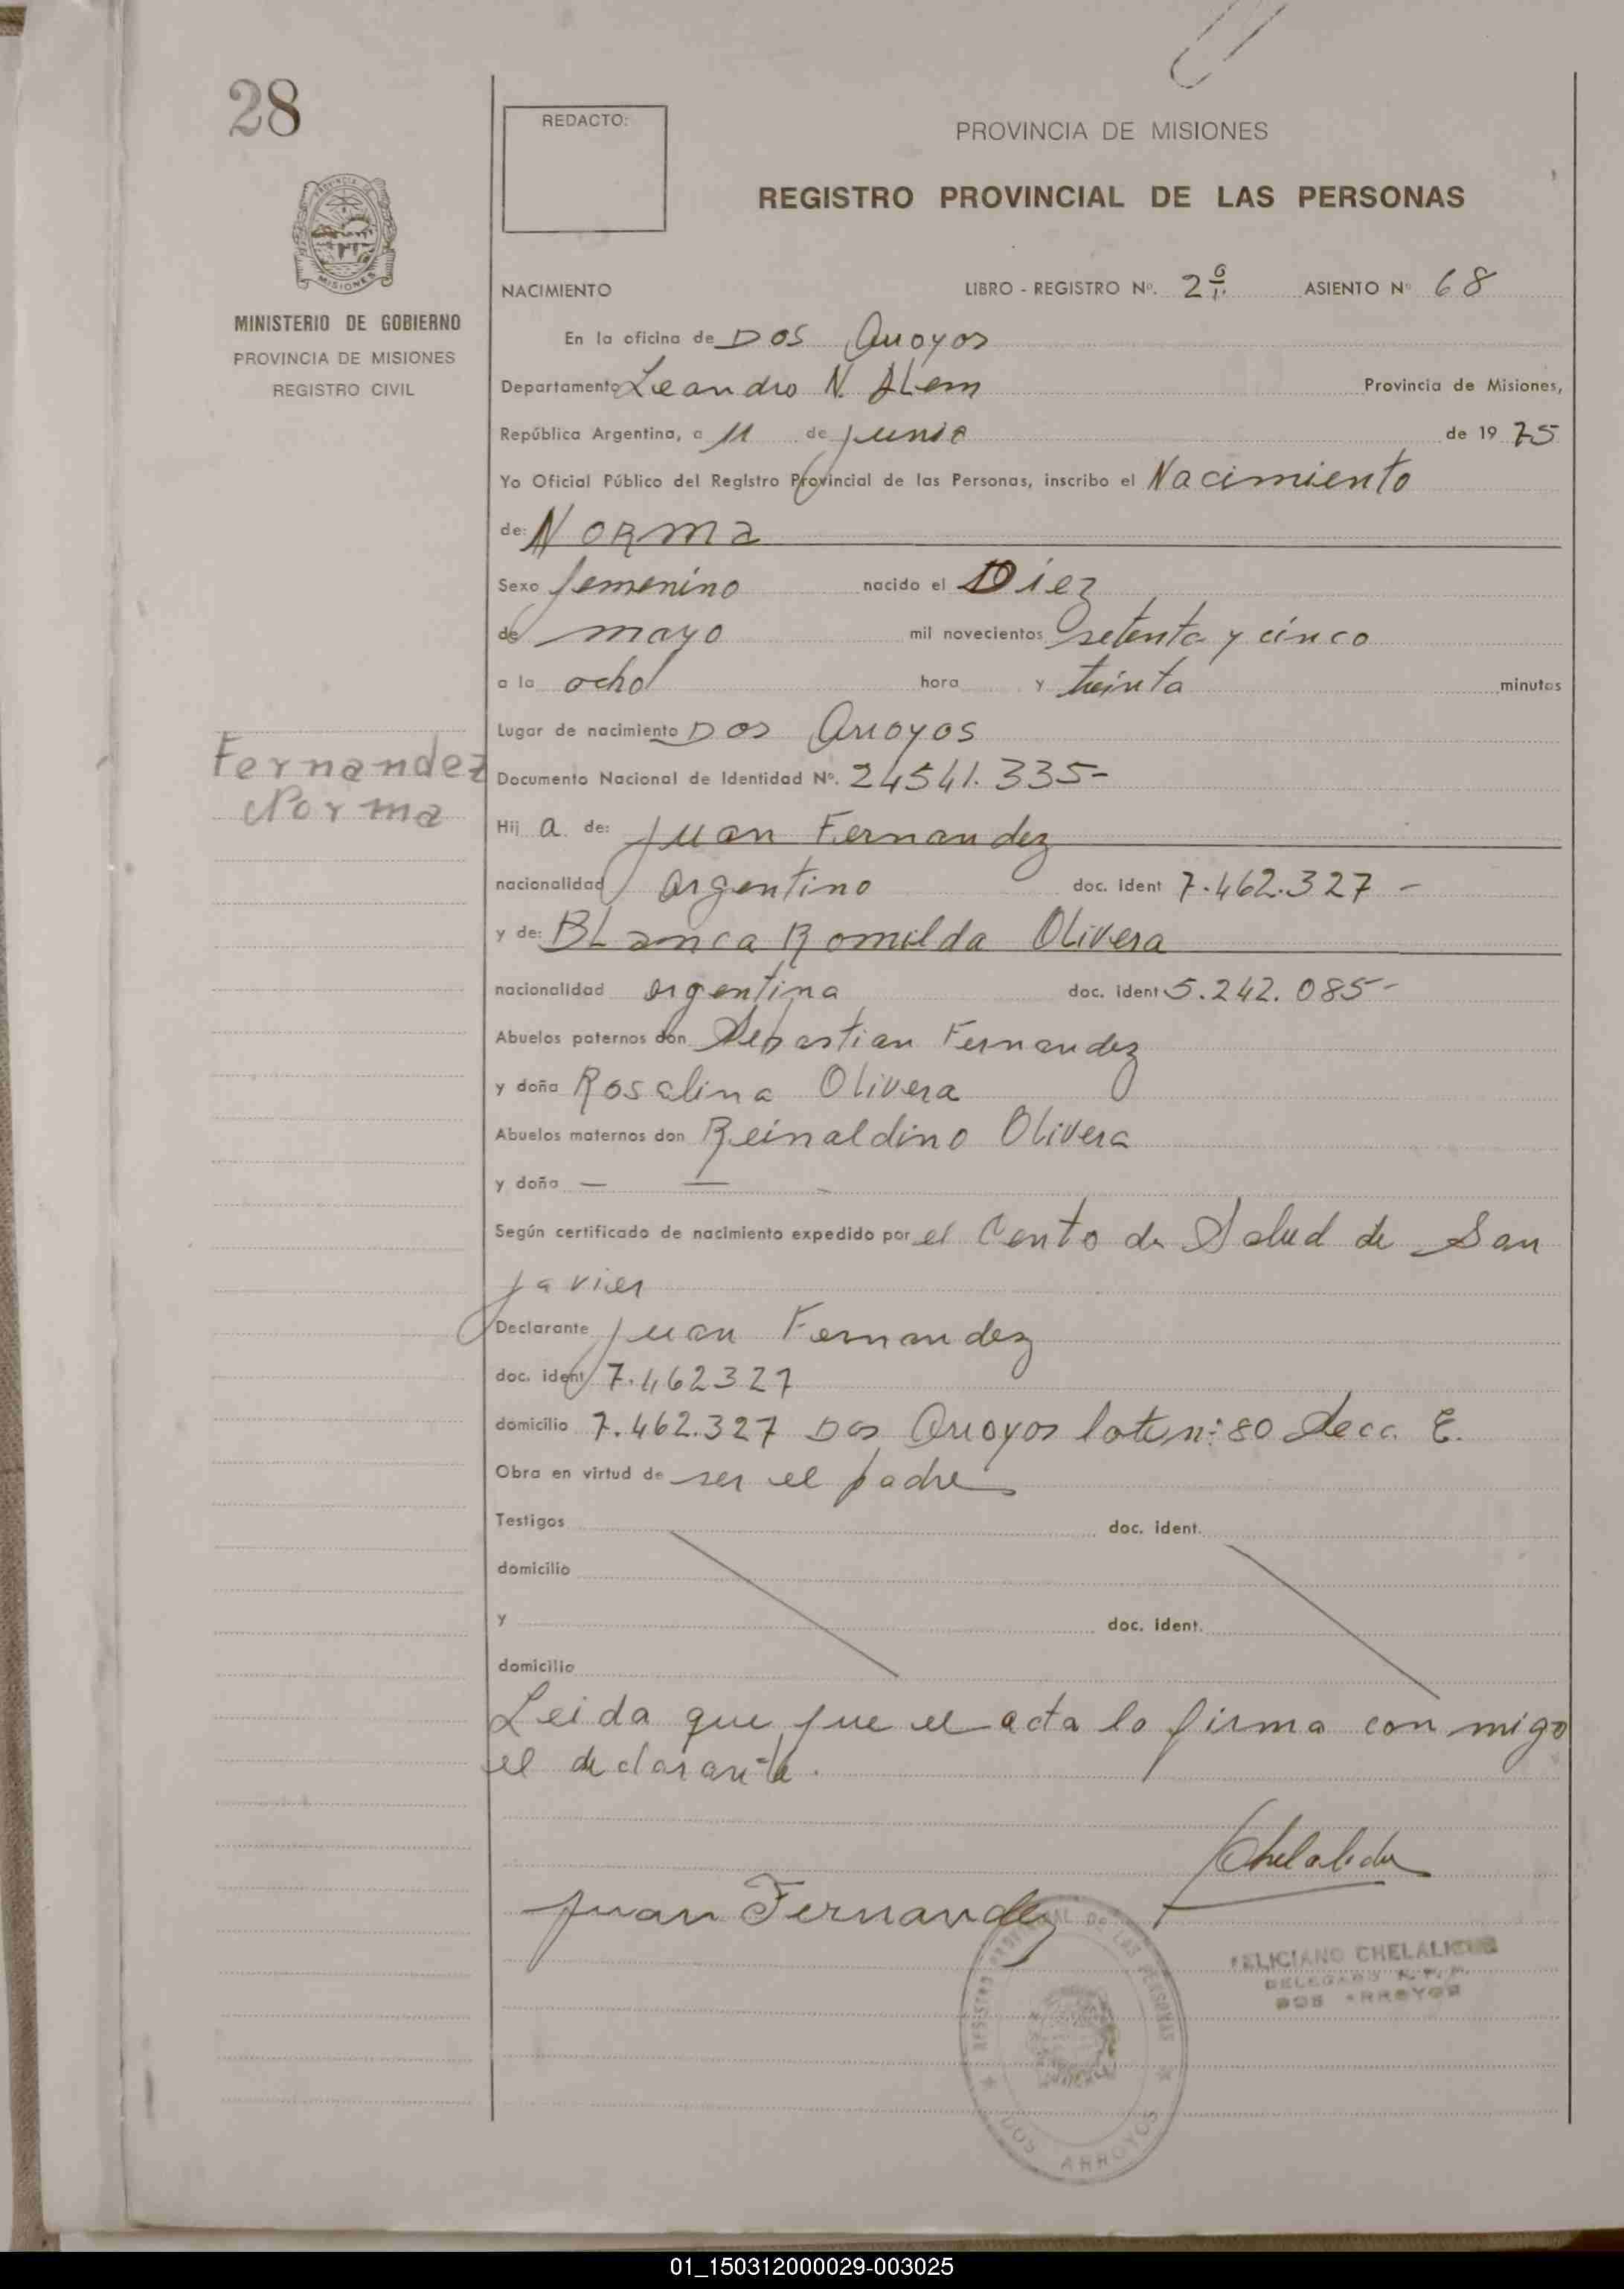 28
REDACTO:
PROVINCIA DE MISIONES
REGISTRO PROVINCIAL DE LAS PERSONAS
PROVINCIA DE
MISIONES
MINISTERIO DE GOBIERNO
PROVINCIA DE MISIONES
REGISTRO CIVIL
NACIMIENTO LIBRO - REGISTRO Nº. 2º ASIENTO Nº 68
En la oficina de DOS Arroyos
Departamento Leandro N. ALem Provincia de Misiones,
República Argentina, a 11 de junio de 1975
Yo Oficial Público del Registro Provincial de las Personas, inscribo el Nacimiento
de: NORMA
Sexo femenino nacido el Diez
de mayo mil novecientos setenta y cinco
a la ocho hora y treinta minutos
Lugar de nacimiento DOS Arroyos
Fernandez
Norma
Documento Nacional de Identidad Nº. 24541.335-
Hij a de: Juan Fernandez
nacionalidad argentino doc. ident 7.462.327 -
y de: BLanca Romilda Olivera
nacionalidad argentina doc. ident 5.242.085-
Abuelos paternos don Sebastian Fernandez
y doña Rosalina Olivera
Abuelos maternos don Reinaldino Olivera
y doña — —
Según certificado de nacimiento expedido por el Cento de Salud de San
Javier
Declarante Juan Fernandez
doc. ident 7.462327
domicilio 7.462.327 Dos Arroyos lote nº 80 Secc. E.
Obra en virtud de ser el padre
Testigos doc. ident.
domicilio
y doc. ident.
domicilio
Leida que fue el acta lo firma con migo
el declarante.
Chelaliche
Juan Fernandez
REGISTRO PROVINCIAL DE LAS PERSONAS
DOS ARROYOS
FELICIANO
DELEGADO R.P.P.
DOS ARROYOS
01_150312000029-003025